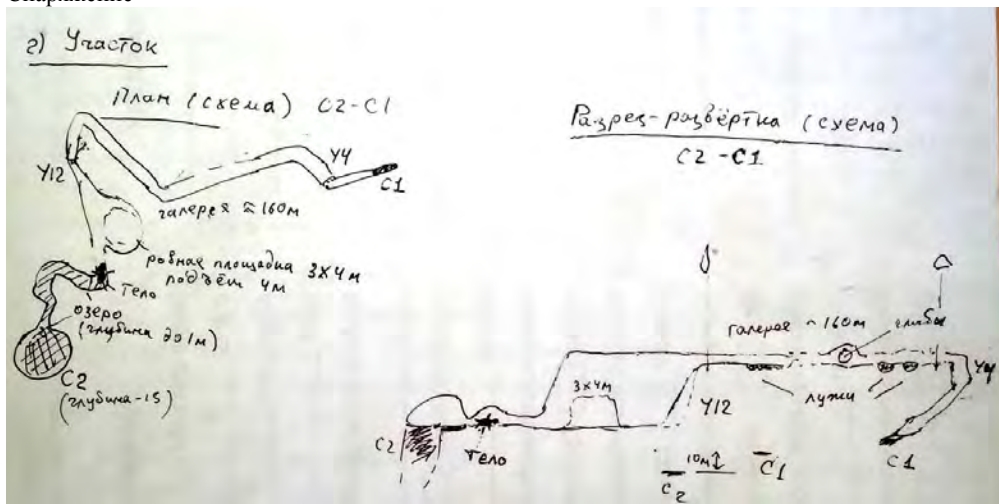 Снаряжение
г) Участок
План (схема) С2-С1
У12
У4
С1
галерея ≈ 160м
ровная площадка 3х4м
подъём 4м
Тело
озеро
(глубина до 1м)
С2
(глубина -15)
Разрез-развёртка (схема)
С2-С1
б
а
галерея ~ 160м
глыбы
3х4м
У12
лужи
У4
С2
Тело
С1
10м
С2
С1